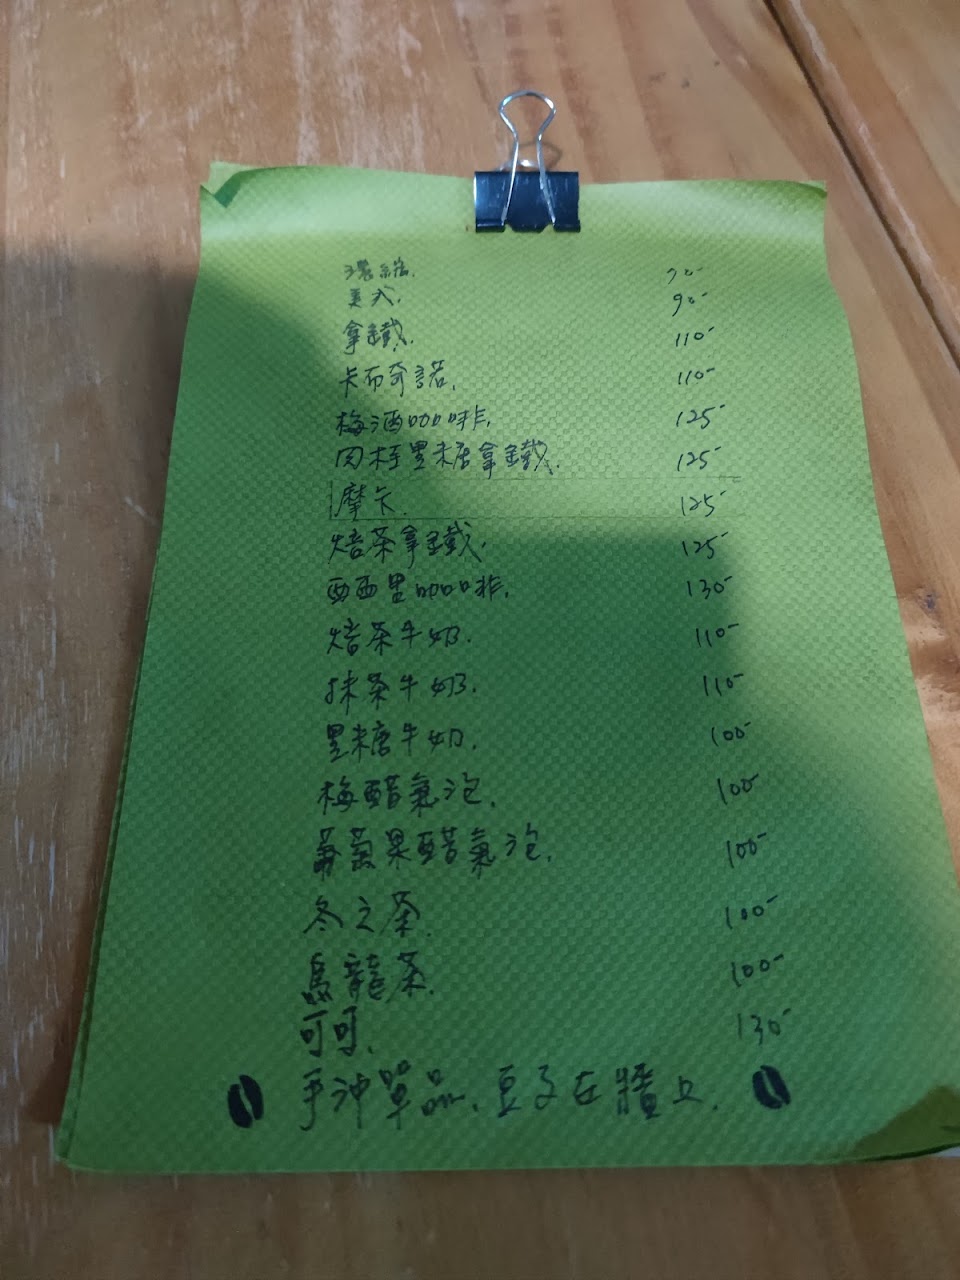 濃縮. 70-
美式. 90-
拿鐵. 110-
卡布奇諾. 110-
梅酒咖啡. 125-
肉桂黑糖拿鐵. 125-
摩卡. 125-
焙茶拿鐵. 125-
西西里咖啡. 130-
焙茶牛奶. 110-
抹茶牛奶. 110-
黑糖牛奶. 100-
梅醋氣泡. 100-
蘋果醋氣泡. 100-
冬之茶. 100-
烏龍茶. 100-
可可. 130-
手沖單品. 豆子在牆上.